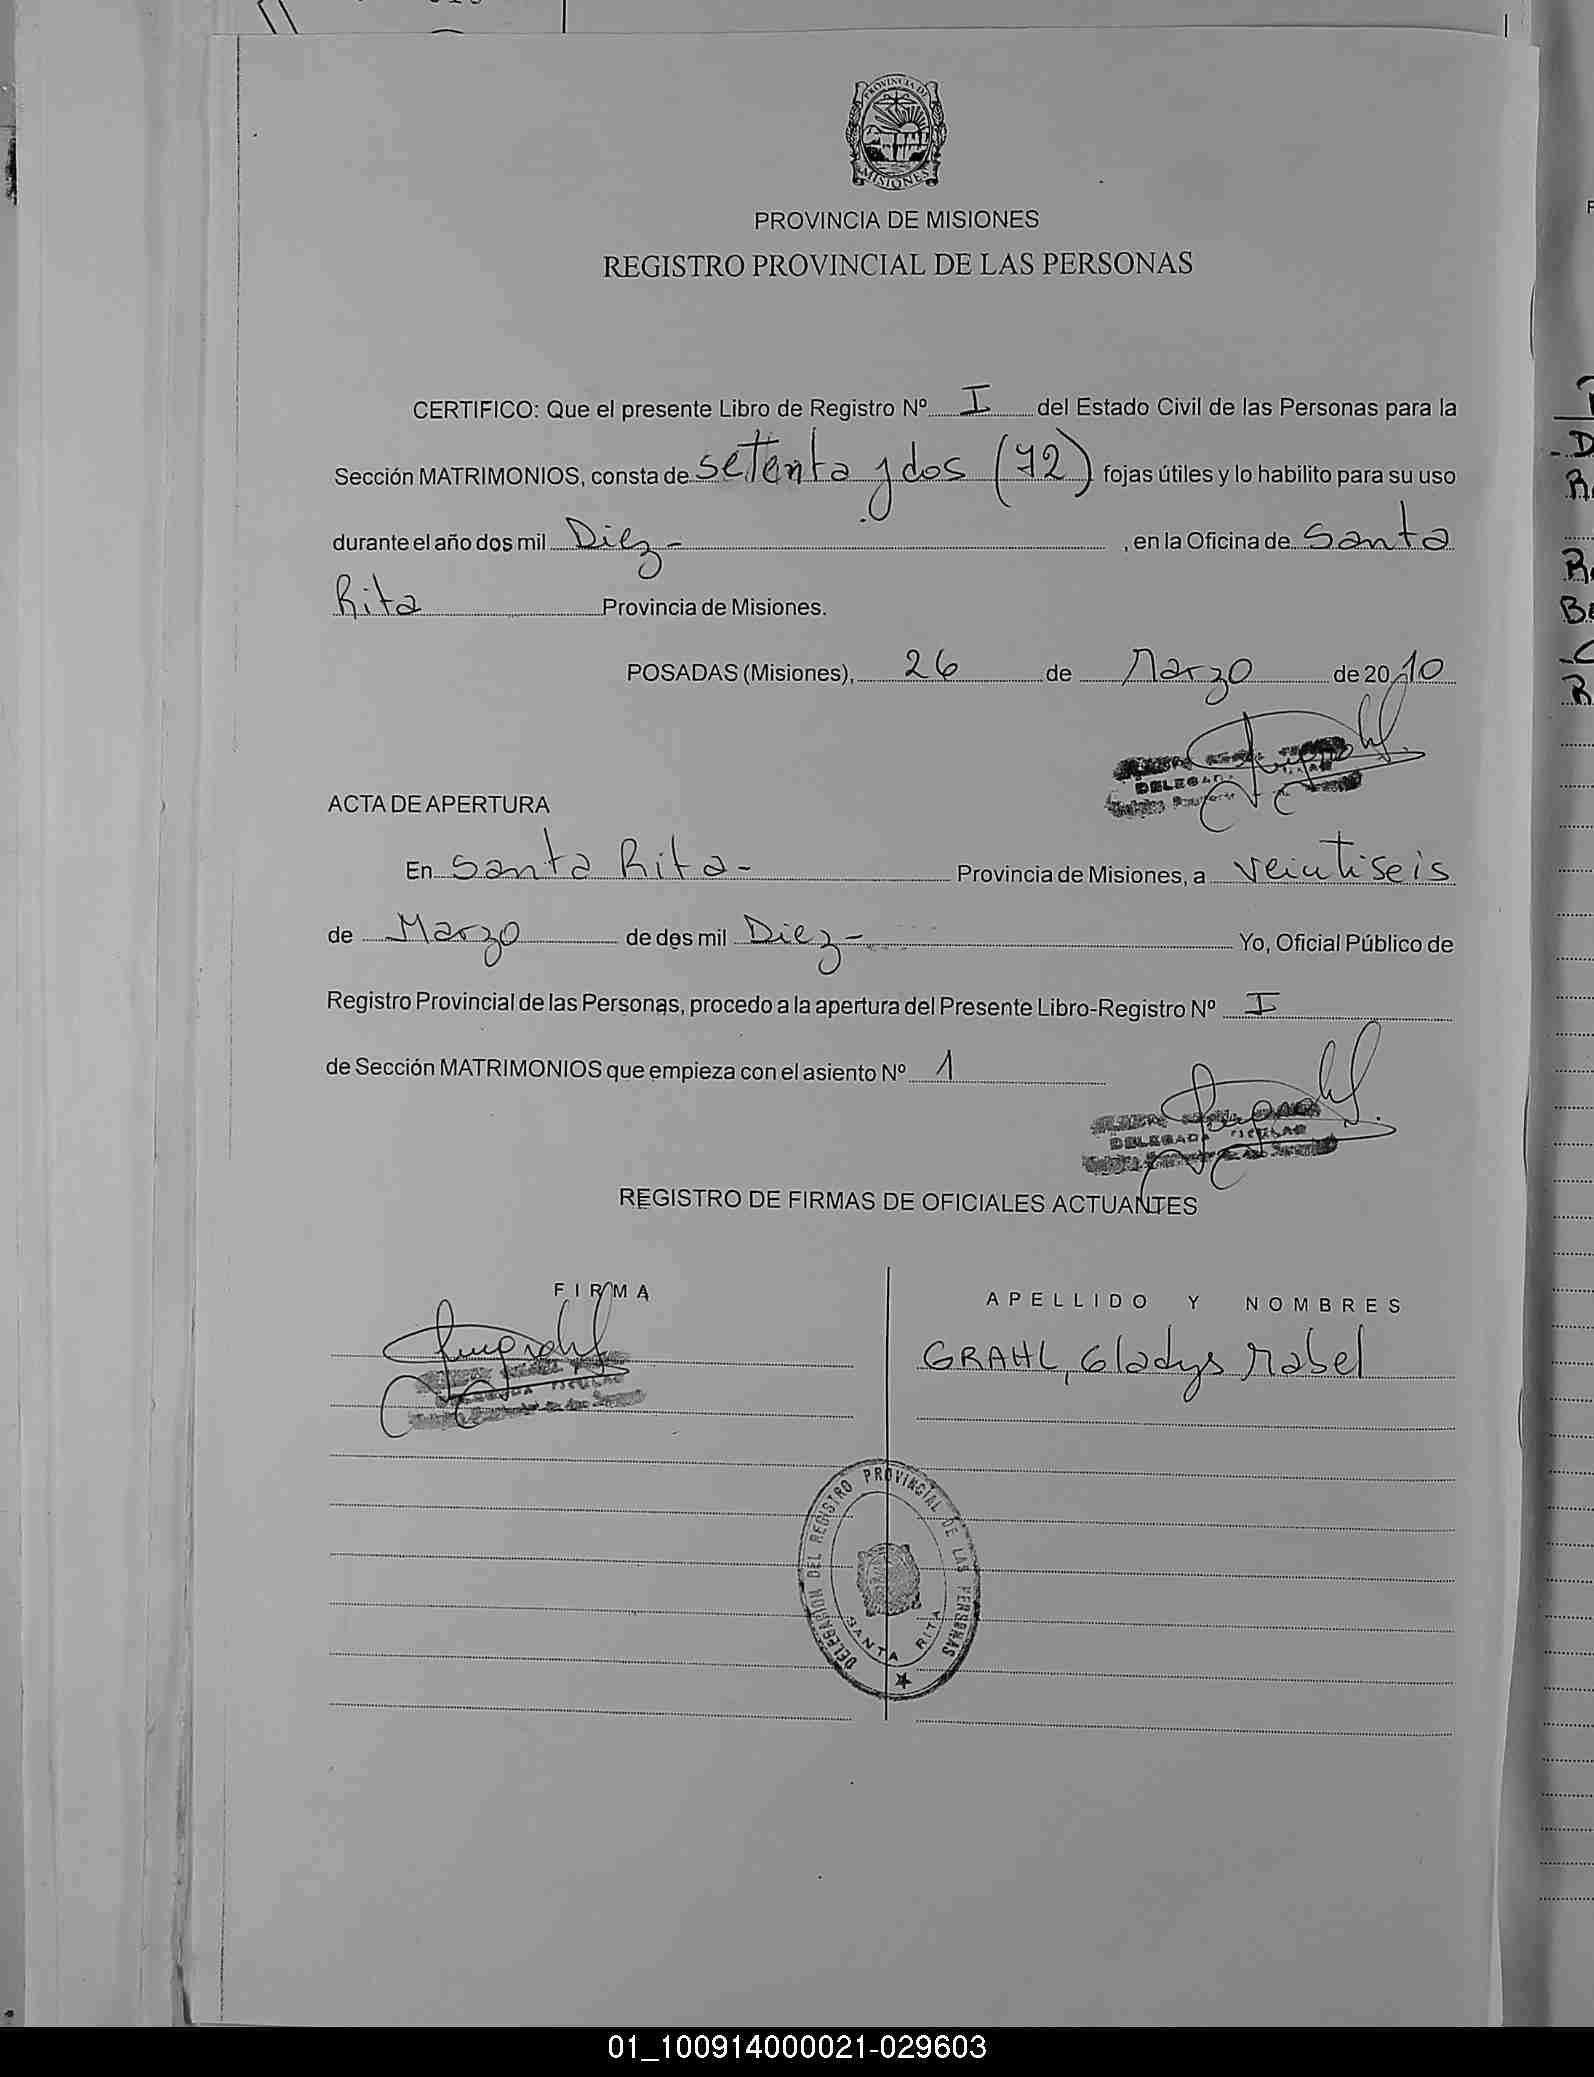 PROVINCIA DE
MISIONES
PROVINCIA DE MISIONES
REGISTRO PROVINCIAL DE LAS PERSONAS
CERTIFICO: Que el presente Libro de Registro Nº I del Estado Civil de las Personas para la
Sección MATRIMONIOS, consta de setenta y dos (72) fojas útiles y lo habilito para su uso
durante el año dos mil Diez - , en la Oficina de Santa
Rita Provincia de Misiones.
POSADAS (Misiones), 26 de Marzo de 2010
DELEGADA
ACTA DE APERTURA
En Santa Rita - Provincia de Misiones, a veintiseis
de Marzo de dos mil Diez - Yo, Oficial Público de
Registro Provincial de las Personas, procedo a la apertura del Presente Libro-Registro Nº I
de Sección MATRIMONIOS que empieza con el asiento Nº 1
DELEGADA TITULAR
REGISTRO DE FIRMAS DE OFICIALES ACTUANTES
FIRMA
APELLIDO Y NOMBRES
GRAHL, Gladys Mabel
DELEGACION DEL REGISTRO PROVINCIAL DE LAS PERSONAS
SANTA RITA
01_100914000021-029603